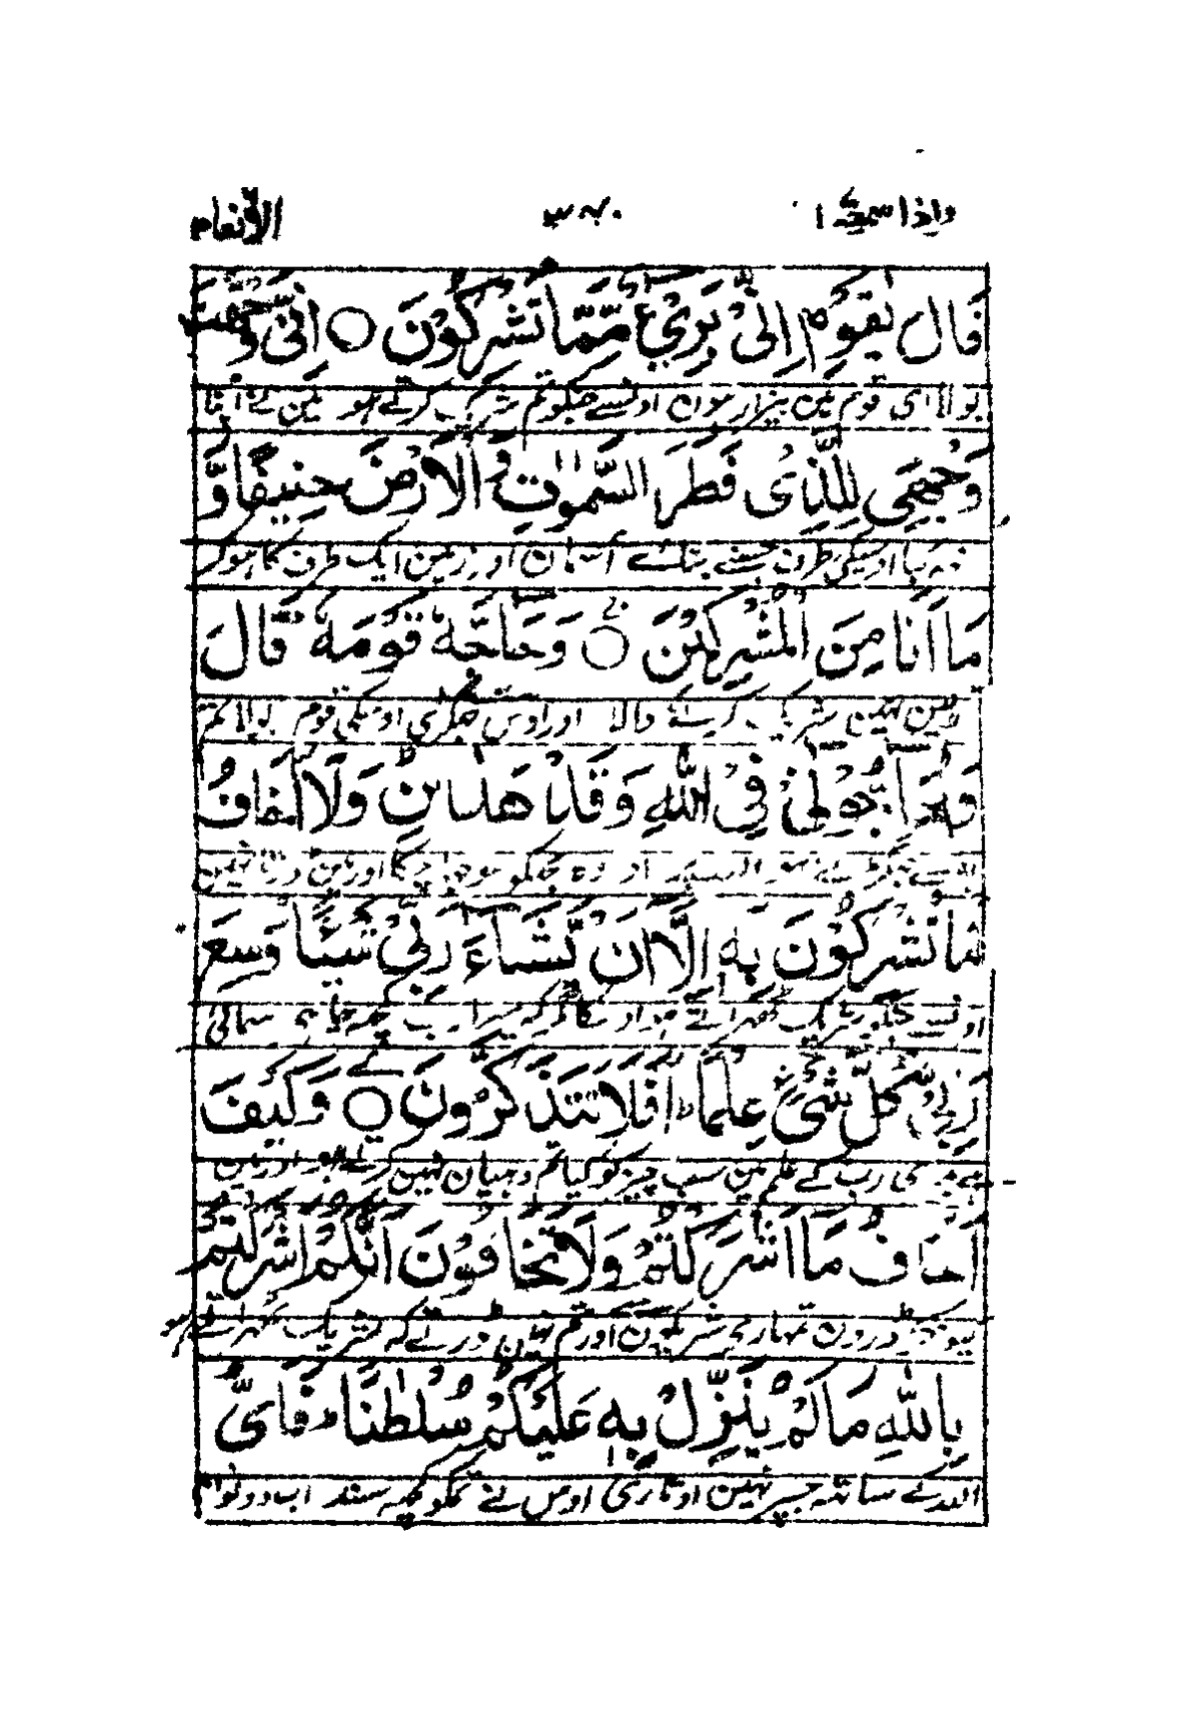 واذا سمعوا ۳۴۰ الانعام
قَالَ يٰقَوْمِ اِنِّىْ بَرِىْٓءٌ مِّمَّا تُشْرِكُوْنَ ○ اِنِّىْ وَجَّهْتُ
بولا ای قوم مین بیزار ہون اونسے جنکو تم شریک کرتے ہو مین نے اپنا
وَجْهِىَ لِلَّذِىْ فَطَرَ السَّمٰوٰتِ وَالْاَرْضَ حَنِيْفًا وَّ
منہ کیا اوسیکی طرف جسنے بنائے آسمان اور زمین ایک طرف کا ہوکر
مَآ اَنَا مِنَ الْمُشْرِكِيْنَ ○ وَحَآجَّهٗ قَوْمُهٗ قَالَ
مین نہین شریک کرنے والا اور اوس جھگڑی اوسکی قوم بولا تم
اَتُحَآجُّوْٓنِّىْ فِى اللّٰهِ وَقَدْ هَدٰىنِ وَلَآ اَخَافُ
اور وہ مجکو سوجھا چکا اور مین ڈرتا نہین
مَا تُشْرِكُوْنَ بِهٖٓ اِلَّآ اَنْ يَّشَآءَ رَبِّىْ شَيْـًٔا وَسِعَ
اونسے جنکو شریک ٹھہراتے ہو اوسکا مگر کہ میرا رب کچھ چاہے سمائی
رَبِّىْ كُلَّ شَىْءٍ عِلْمًا اَفَلَا تَتَذَكَّرُوْنَ ○ وَكَيْفَ
ہے میری رب کے علم مین سب چیز کو کیا تم دہیان نہین کرتے اور مین
اَخَافُ مَآ اَشْرَكْتُمْ وَلَا تَخَافُوْنَ اَنَّكُمْ اَشْرَكْتُمْ
کیونکر ڈرون تمہارے شریکون اور تم نہین ڈرتے کہ شریک ٹھہراتے ہو
بِاللّٰهِ مَا لَمْ يُنَزِّلْ بِهٖ عَلَيْكُمْ سُلْطٰنًا فَاَىُّ
اللہ کے ساتھ جسپر نہین اوتاری اوس نے تمکو کچھ سند اب دونو